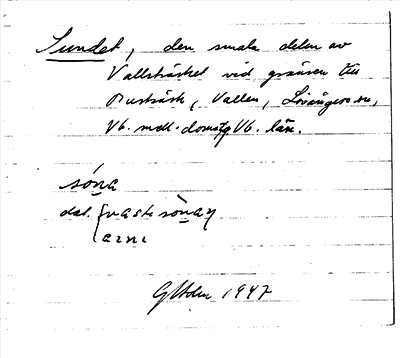 Sundet, den smala delen av
Vallsträsket vid gränsen till
Burträsk, Vallen, Lövångers sn,
Vb. mell. doms. Vb. län.
söna
dat. vasts sönan
1947